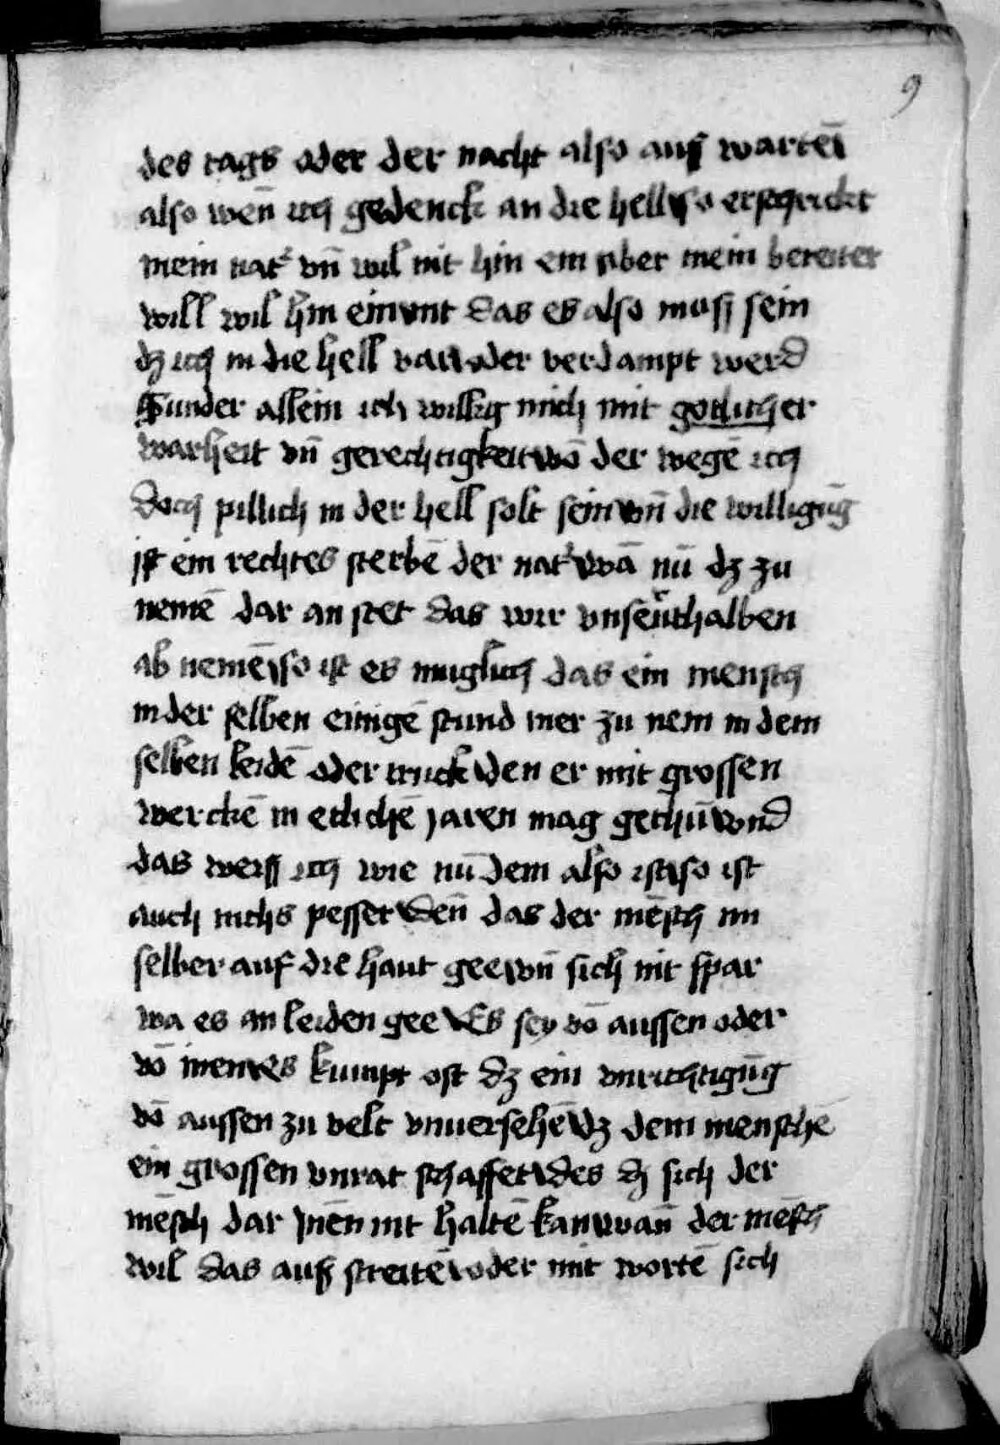 9
des tags oder der nacht also auß wartē
also wen̄ ich gedenck an die hell so erschrickt
mein nat᷑ vn̄ wil nit hin ein aber mein bereiter
will wil hin ein vnt das es also muß sein
dz ich in die hell var oder verdampt werd
Sunder allein ich willig mich mit gotlicher
warheit vn̄ gerechtigkeit vō der wegē ich
doch pillich in der hell solt sein vn̄ die willigūg
ist ein rechtes sterbē der nat᷑ wā nū dz zu
nemē dar an stet das wir vnserthalben
ab nemē so ist es muglich das ein mensch
in der selben einigē stund mer zu nem in dem
selben leidē oder truck den er mit grossen
werckē in etlichē jaren mag gethū vnd
das weiß ich wie nū dem also ist so ist
auch nichs pesser den̄ das der mēsch im
selber auf die haut gee vn̄ sich nit spar
wa es an leiden gee Es sey vō aussen oder
vō inen es kumpt oft dz ein vnrichtigūg
vō aussen zu velt vnuersehē dz dem menschē
ein grossen vnrat schaffet des dz sich der
mēsch dar jnēn nit haltē kan wan̄ der mēsch
wil das auß streitē oder mit wortē sich